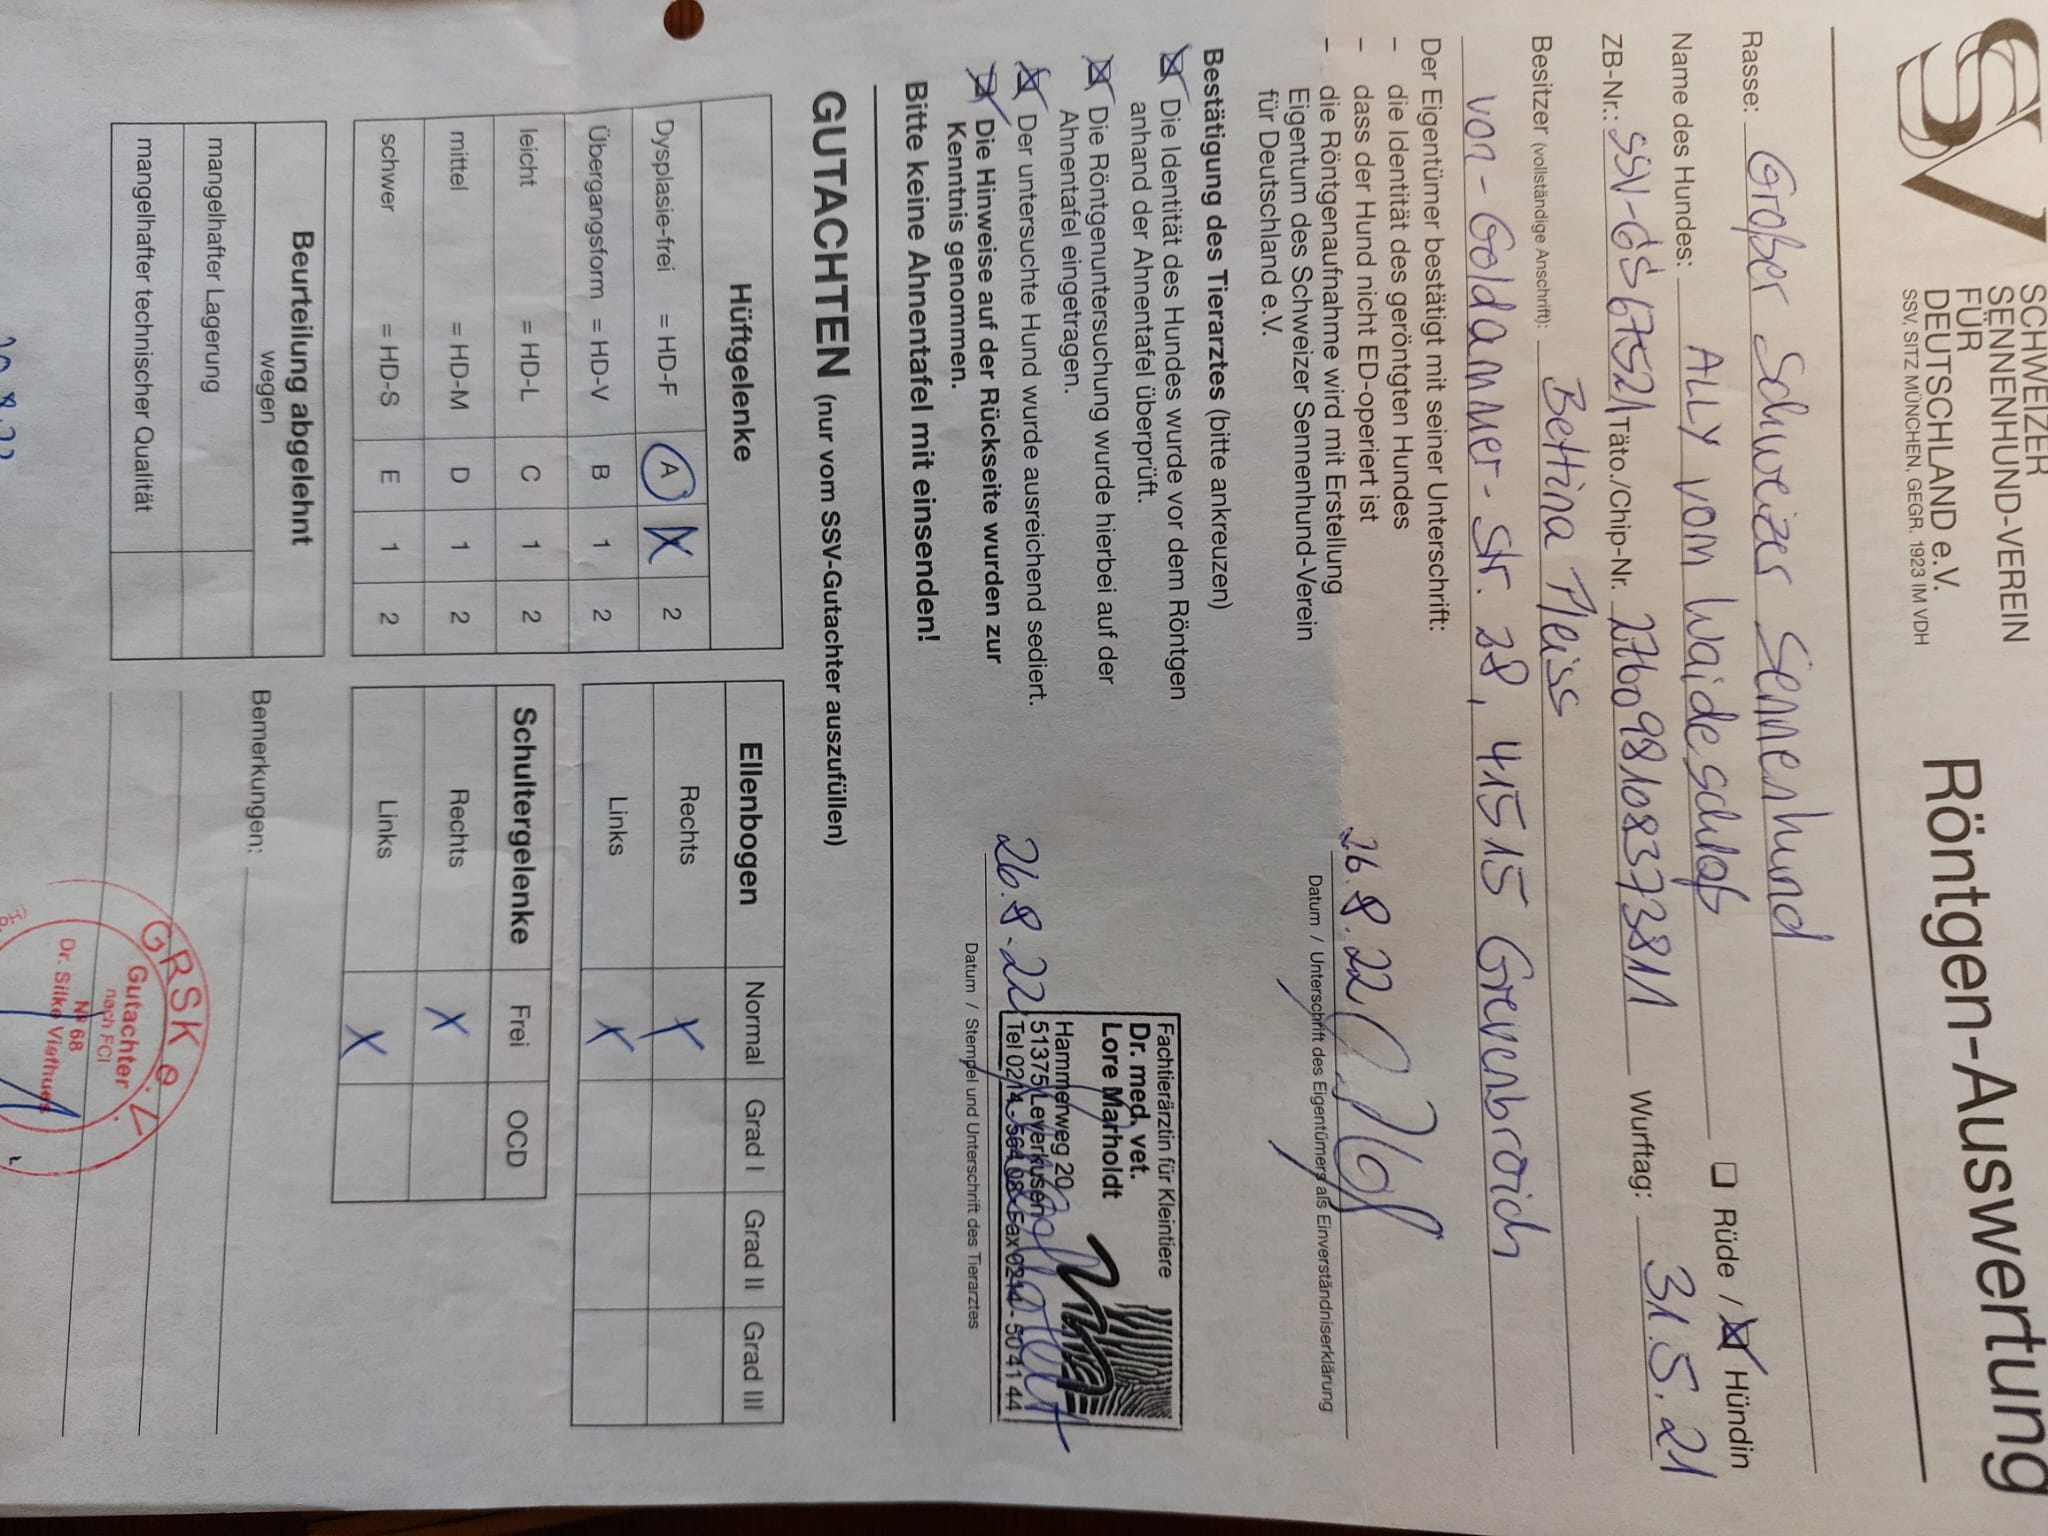 SSV
SCHWEIZER
SENNENHUND-VEREIN
FÜR
DEUTSCHLAND e.V.
SSV, SITZ MÜNCHEN, GEGR. 1923 IM VDH
Röntgen-Auswertung
Rasse: Großer Schweizer Sennenhund
Name des Hundes: ALLY vom Waideschloß ❑ Rüde / ☒ Hündin
ZB-Nr.: SSV-GS67521 Täto./Chip-Nr. 276098108373811 Wurftag: 31.5.21
Besitzer (vollständige Anschrift): Bettina Meiss
von-Goldammer-Str. 28, 41515 Grevenbroich
Der Eigentümer bestätigt mit seiner Unterschrift:
– die Identität des geröntgten Hundes
– dass der Hund nicht ED-operiert ist
– die Röntgenaufnahme wird mit Erstellung
Eigentum des Schweizer Sennenhund-Verein
für Deutschland e.V.
26.8.22
Datum / Unterschrift des Eigentümers als Einverständniserklärung
Bestätigung des Tierarztes (bitte ankreuzen)
☒ Die Identität des Hundes wurde vor dem Röntgen
anhand der Ahnentafel überprüft.
☒ Die Röntgenuntersuchung wurde hierbei auf der
Ahnentafel eingetragen.
☒ Der untersuchte Hund wurde ausreichend sediert.
☒ Die Hinweise auf der Rückseite wurden zur
Kenntnis genommen.
Bitte keine Ahnentafel mit einsenden!
Fachtierärztin für Kleintiere
Dr. med. vet.
Lore Marholdt
Hammerweg 20
51375 Leverkusen
Tel 0214-564 08 Fax 0214-504144
26.8.22
Datum / Stempel und Unterschrift des Tierarztes
GUTACHTEN (nur vom SSV-Gutachter auszufüllen)
Hüftgelenke
Dysplasie-frei = HD-F A X 2
Übergangsform = HD-V B 1 2
leicht = HD-L C 1 2
mittel = HD-M D 1 2
schwer = HD-S E 1 2
Ellenbogen Normal Grad I Grad II Grad III
Rechts X
Links X
Schultergelenke Frei OCD
Rechts X
Links X
Beurteilung abgelehnt
wegen
mangelhafter Lagerung
mangelhafter technischer Qualität
Bemerkungen:
GRSK e.V.
Gutachter
nach FCI
Nº 68
Dr. Silke Viefhues